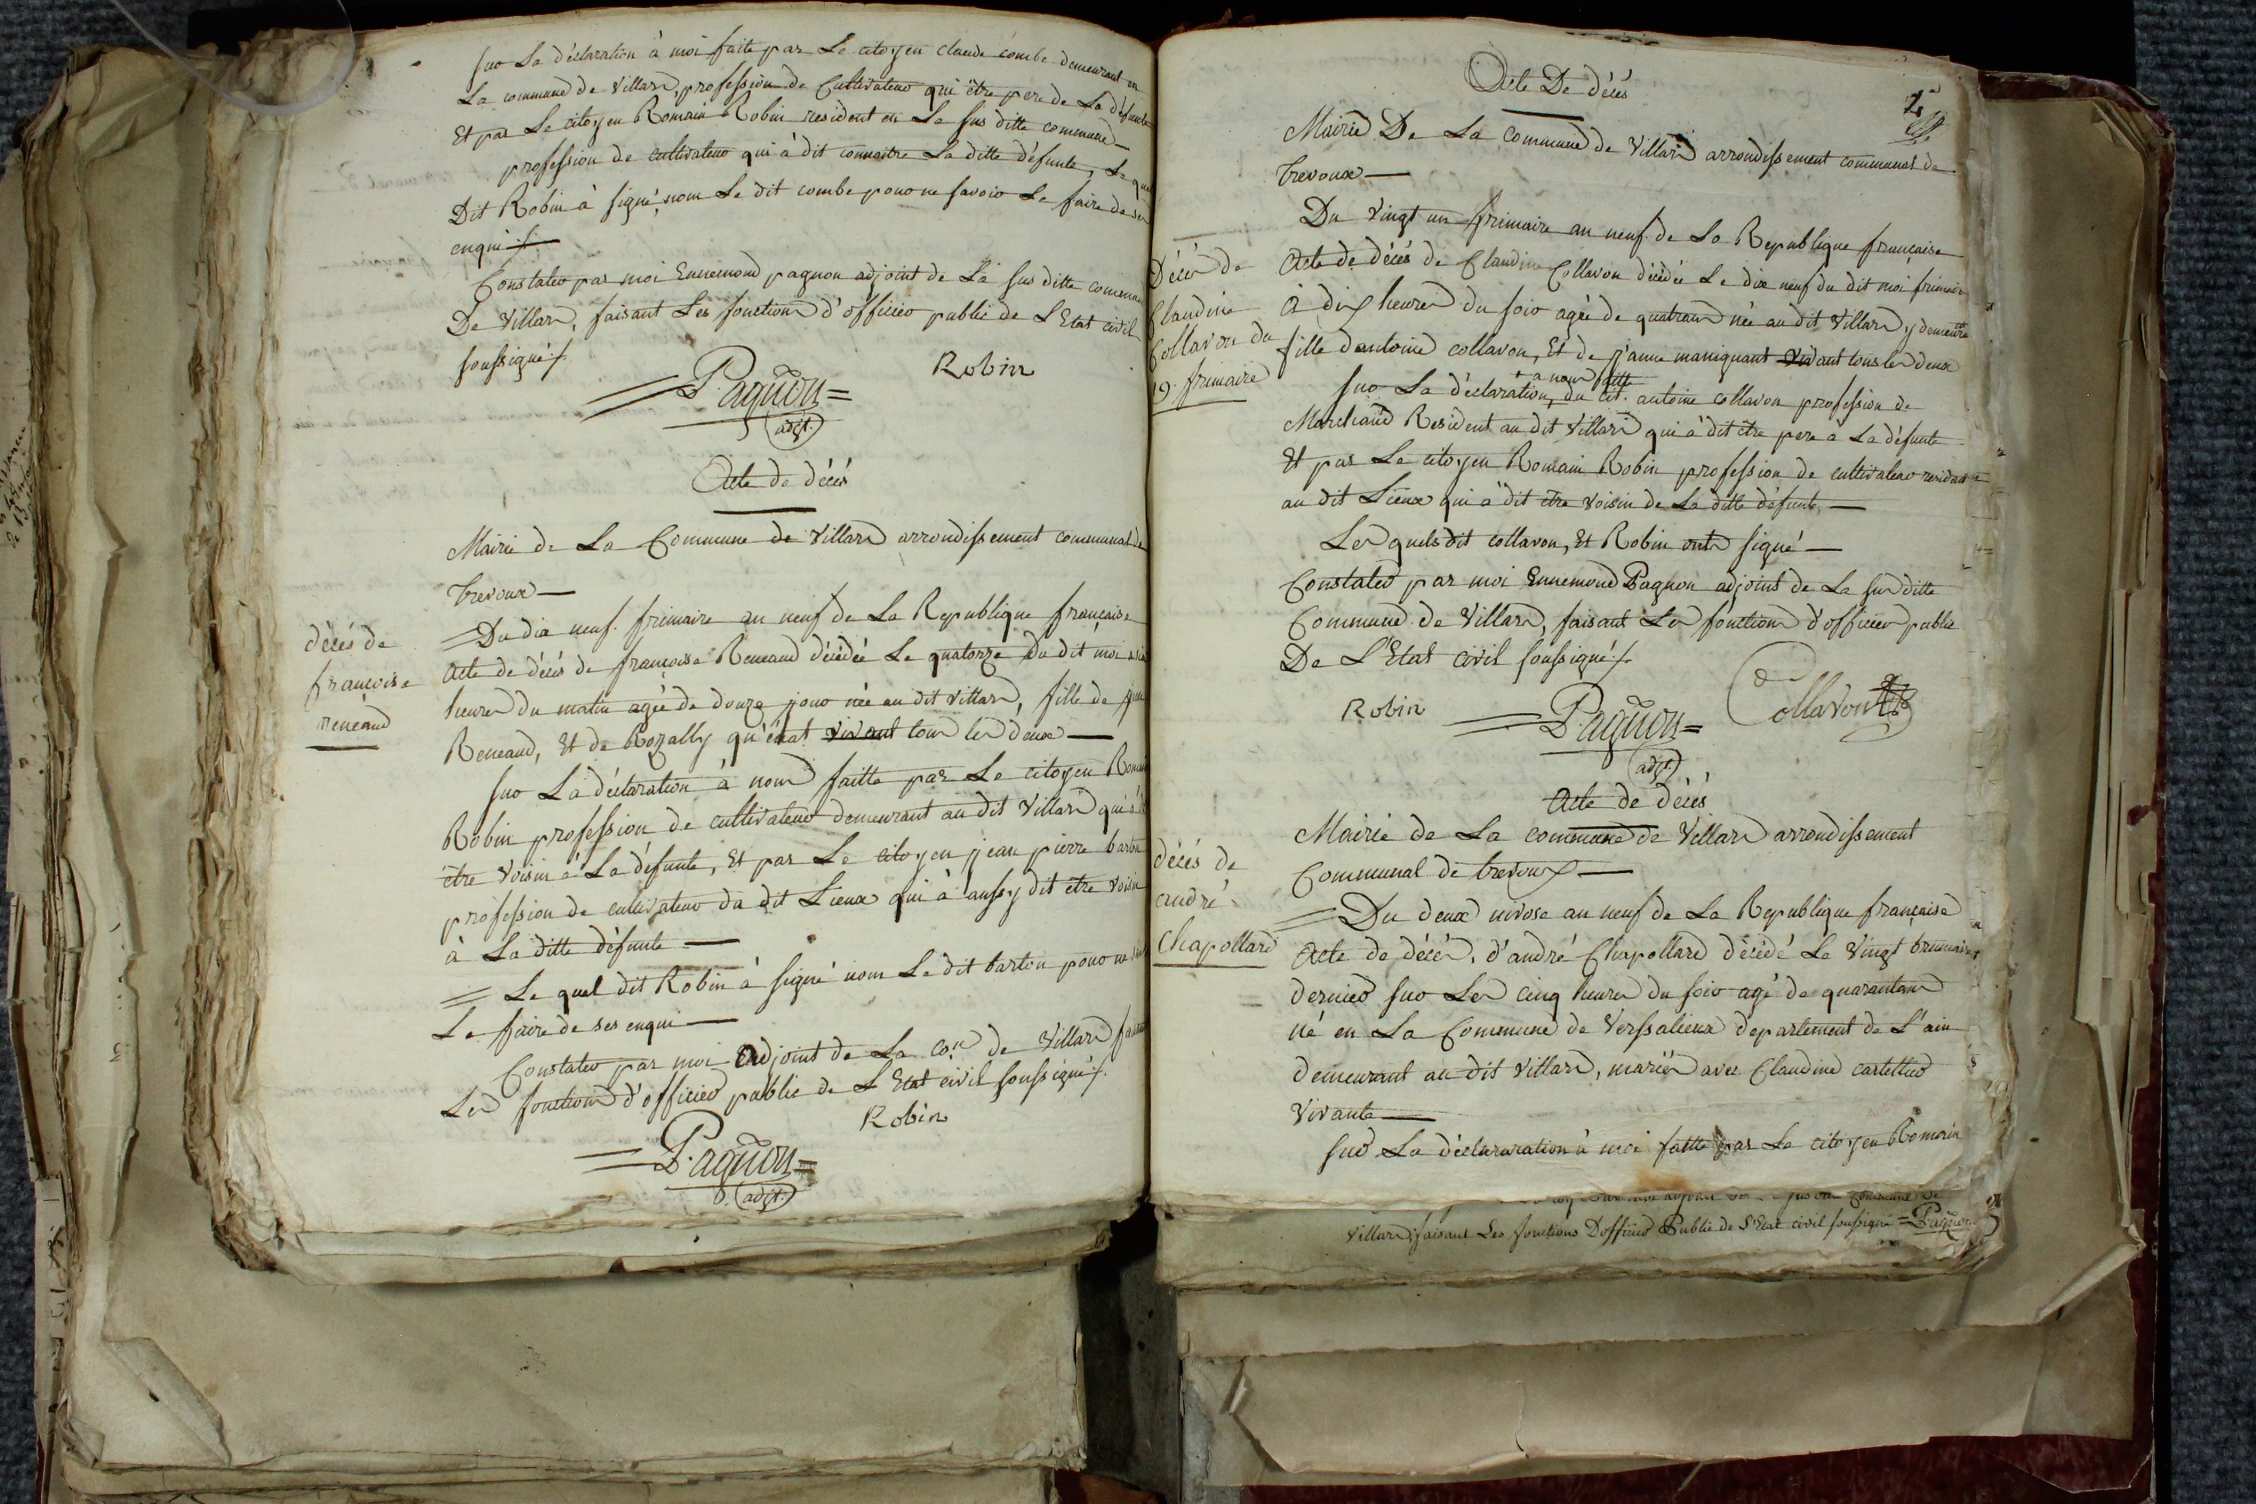 suo La déclaration à moi faite par Le citoyen claude combe demeurant en
La commune de Villars, profession de Cultivateuo qui être pere de La défunte
Et par Le citoyen Romain Robin resident en La sus ditte commune
profession de cultivateuo qui à dit connaitre La ditte défunte, Le quel
Dit Robin à signé, nom Le dit combe pouo ne savoio Le faire de
enqui
Constateo par moi Ennemond pagnon adjoint de La sus ditte commune
De Villars, faisant Les fonctions d'officieo public de L'Etat civil
soussigné
P. agnon Robin
adjt.
Acte de décés
Mairie de La Commune de Villars arrondissement communal de
trevoux
Du dix neuf frimaire an neuf de La Republique française
décés de
françoise
reneaud
Acte de décés de françoise Reneaud décédée Le quatorze du dit moi
heures du matin agée de douze jouo née au dit villars, fille de
Reneaud, Et de Rozally qu'érat vivant tous les deux
suo La déclaration à nous faitte par Le citoyen Romain
Robin profession de cultivateuo demeurant au dit Villars qui à
être Voisin à La défunte, Et par Le citoyen jean pierre
profession de cultivateuo du dit Lieux qui à aussy dit être Voisin
à La ditte défunte
Le quel dit Robin à signé nom Le dit barton pouo ne
Le faire de ses enqui
Constateo par moi adjoint de La con de Villars
Les fonctions d'officieo public de L'Etat civil soussigné
Robin
P. agnon
adjt.
Acte De décés
Mairie De La Commune de Villars arrondissement communal de
trevoux
Du Vingt un frimaire an neuf de La Republique française
Décés de
Claudine
Collavon du
19. frimaire
Acte de décés de Claudine Collavon décédée Le dix neuf du dit moi frimaire
à dix heures du soio agée de quatrans née au dit Villars y demeure
fille dantoine collavon, Et de janne maniguant vivant tous les deux
+ a nous faitte
suo La déclaration, du cit. antoine collavon profession de
Marchand Resident au dit Villars qui à dit être pere à La défunte
Et par Le citoyen Romain Robin profession de cultivateuo residant
au dit Lieux qui à dit être Voisin de La ditte défunte
Les quels dit collavon, Et Robin onts signé
Constateo par moi Ennemond Pagnon adjoint de La sus ditte
Commune de Villars, faisant Les fonctions d'officieo public
De L'Etat civil soussigné
Robin P. agnon Collavon
adjt.
Acte de décés
Mairie de La commune de Villars arrondissement
Communal de trevoux
décés de
andré
Chapollard
Du deux nivose an neuf de La Republique française
Acte de décés, d'andré Chapollard décédé Le Vingt brumaire
dernieo suo Les cinq heures du soio agé de quarantans
né en La Commune de Versalieux departement de L'ain
demeurant au dit Villars, mariés avec Claudine
Vivante
suo La déclararation à moi faitte par Le citoyen Romain
Villars, faisant Les fonctions D'officieo Public de L'Etat civil soussigné Pagnon